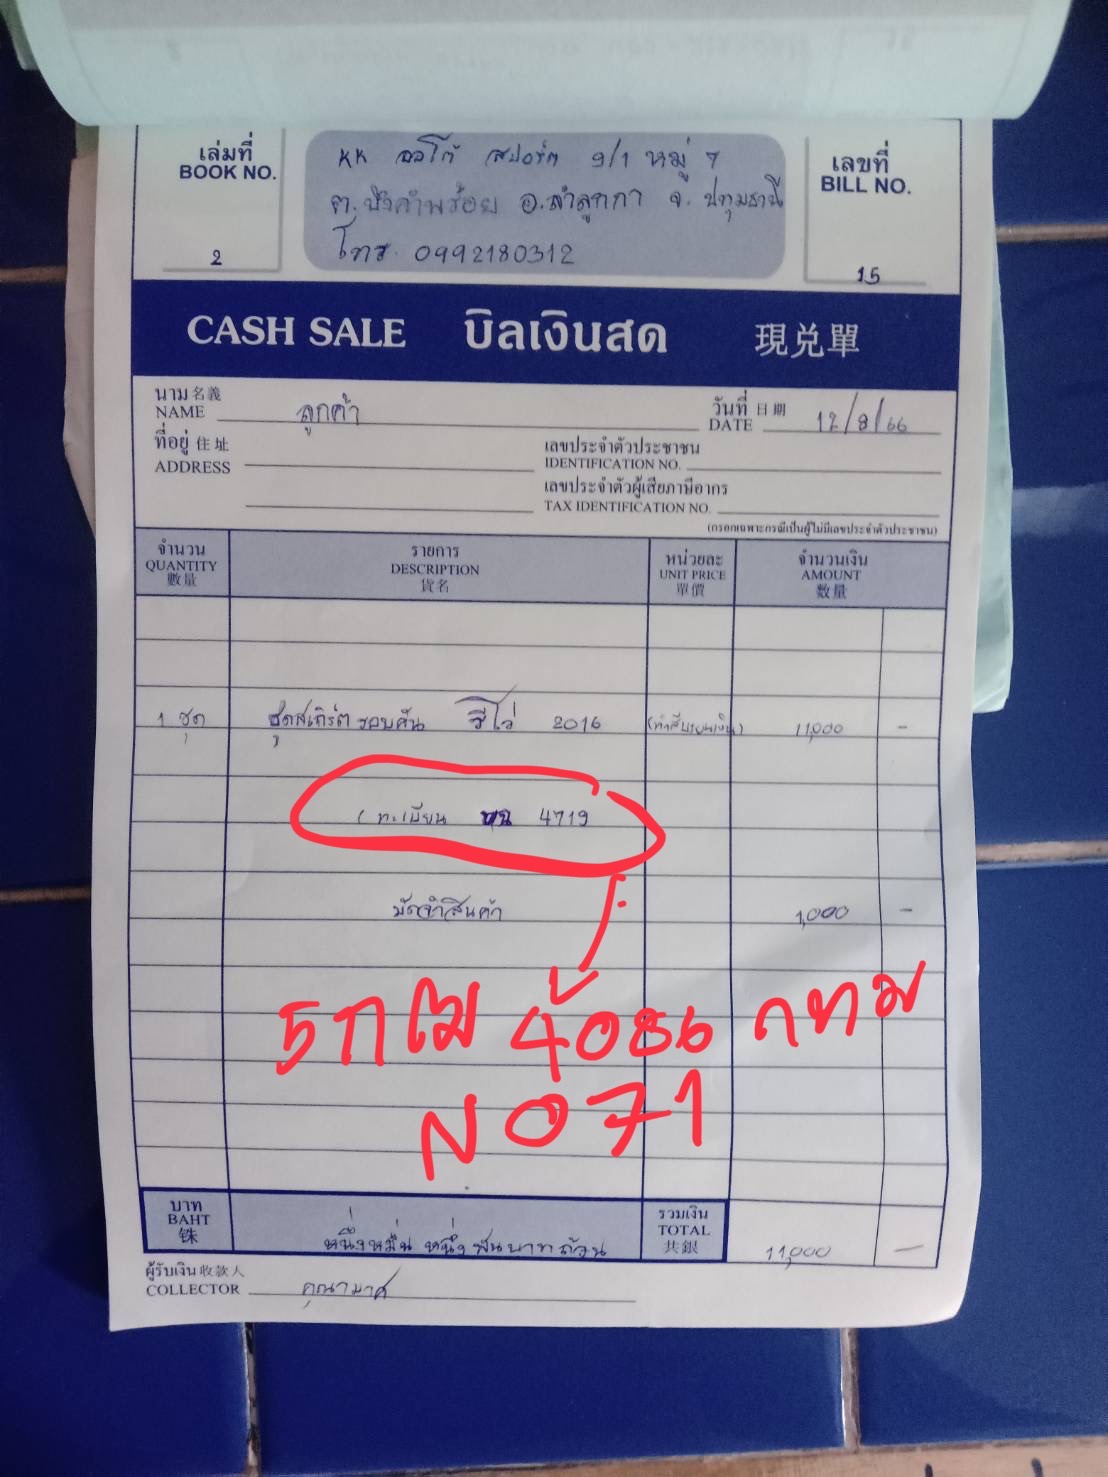 เล่มที่
BOOK NO.
2
KK ออโต้ สปอร์ต 9/1 หมู่ 7
ต.บึงคำพร้อย อ.ลำลูกกา จ.ปทุมธานี
โทร. 0992180312
เลขที่
BILL NO.
15
CASH SALE บิลเงินสด 現兑單
นาม 名義
NAME ลูกค้า
วันที่ 日期
DATE 12/8/66
ที่อยู่ 住址
ADDRESS
เลขประจำตัวประชาชน
IDENTIFICATION NO.
เลขประจำตัวผู้เสียภาษีอากร
TAX IDENTIFICATION NO.
(กรอกเฉพาะกรณีเป็นผู้ไม่มีเลขประจำตัวประชาชน)
จำนวน
QUANTITY
數量
รายการ
DESCRIPTION
貨名
หน่วยละ
UNIT PRICE
單價
จำนวนเงิน
AMOUNT
数量
1 ชุด ชุดสเกิร์ตรอบคัน รีโว่ 2016 11,000 -
(ทะเบียน 4719
มัดจำสินค้า 1,000 -
5กฒ 4086 กทม
NO71
บาท
BAHT
铢
หนึ่งหมื่นหนึ่งพันบาทถ้วน
รวมเงิน
TOTAL
共銀
11,000 -
ผู้รับเงิน 收款人
COLLECTOR